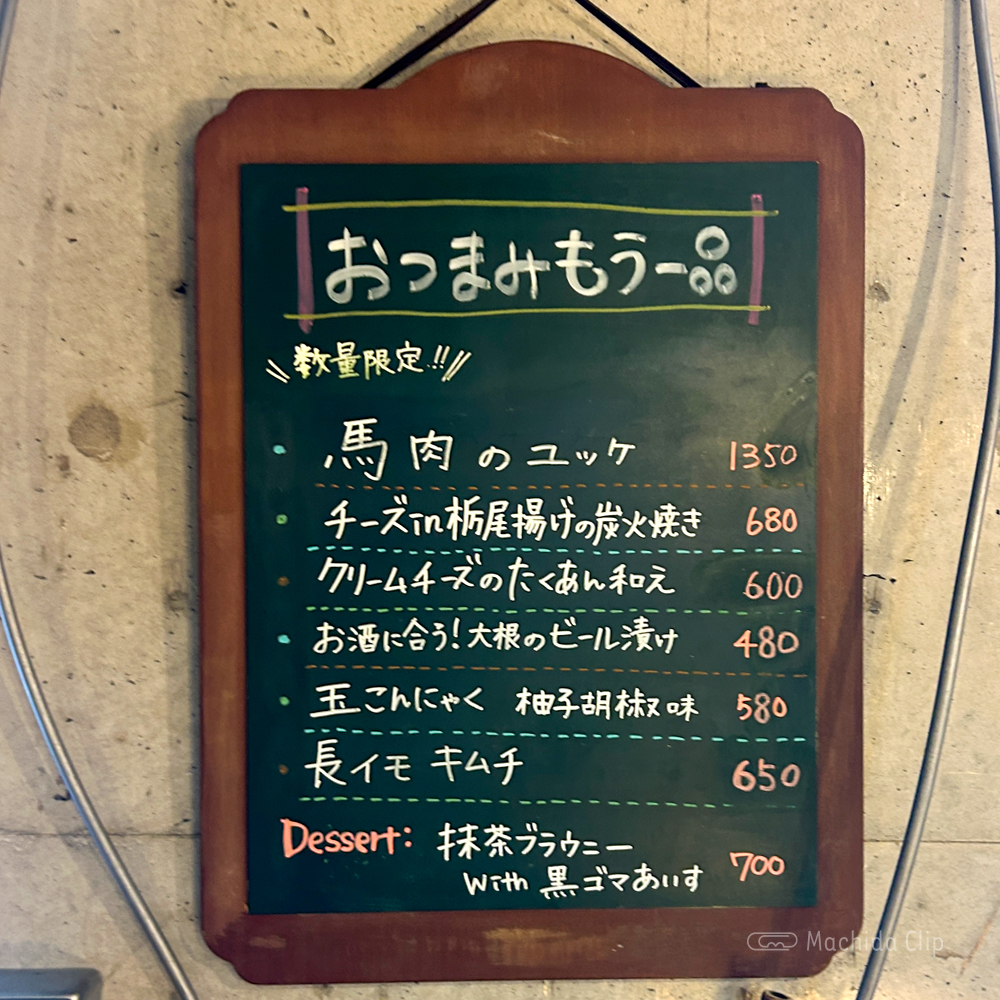 おつまみもう一品
数量限定!!
馬肉のユッケ 1350
チーズin栃尾揚げの炭火焼き 680
クリームチーズのたくあん和え 600
お酒に合う!大根のビール漬け 480
玉こんにゃく 柚子胡椒味 580
長イモキムチ 650
Dessert: 抹茶ブラウニー
with 黒ゴマあいす 700
Machida Clip